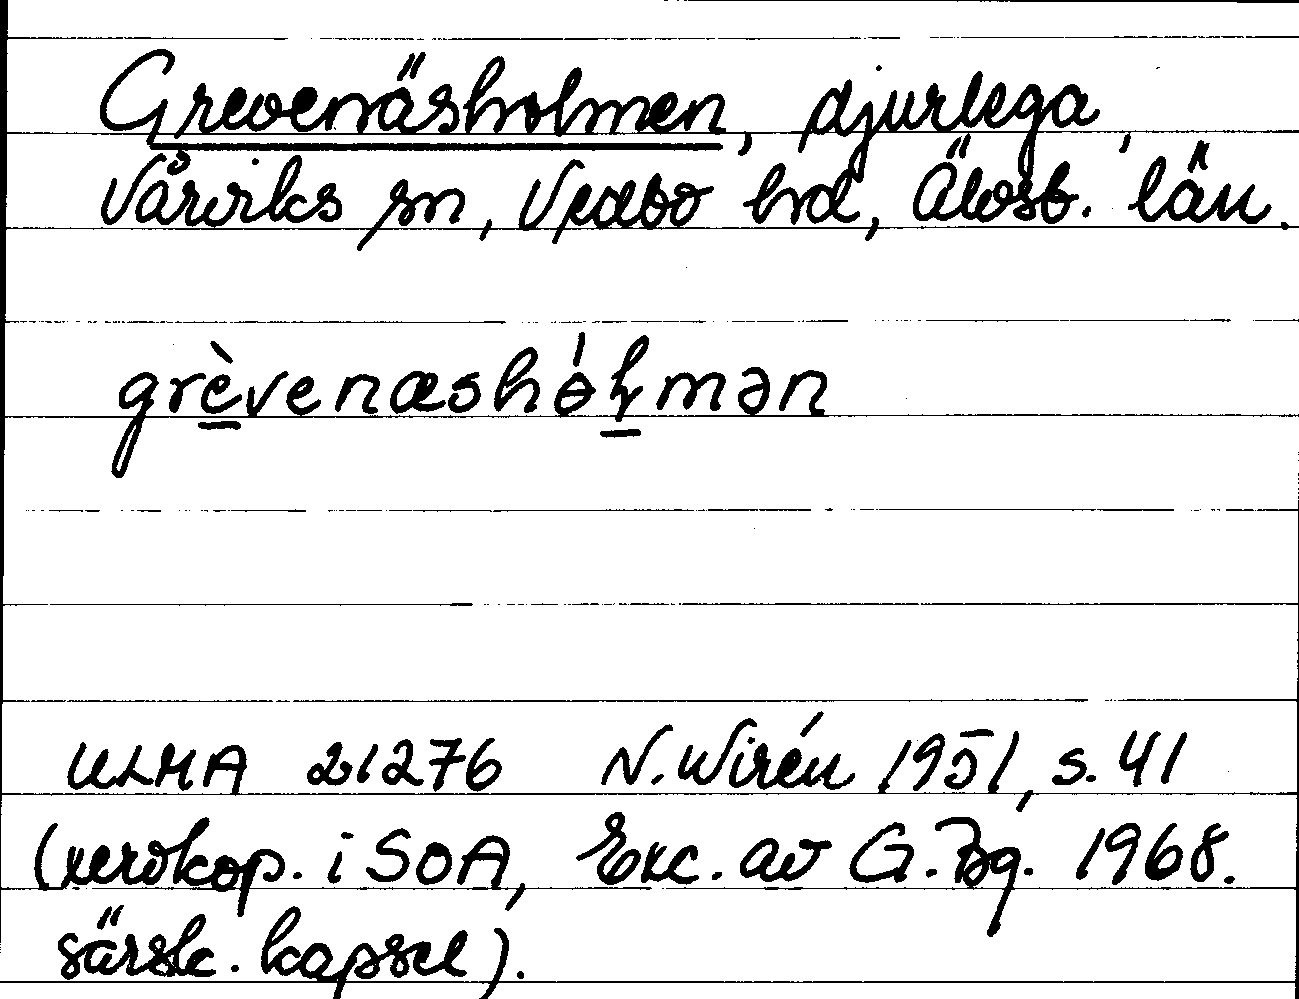 Grevenäsholmen, djurlega,
Vårviks sn, Vedbo hd, Älvsb. län.
grèvenæshɵ́ɫmən
ULMA 21276 N. Wirén 1951, s. 41
(xerokop. i SOA, Exc. av G. Bg. 1968.
särsk. kapsel).